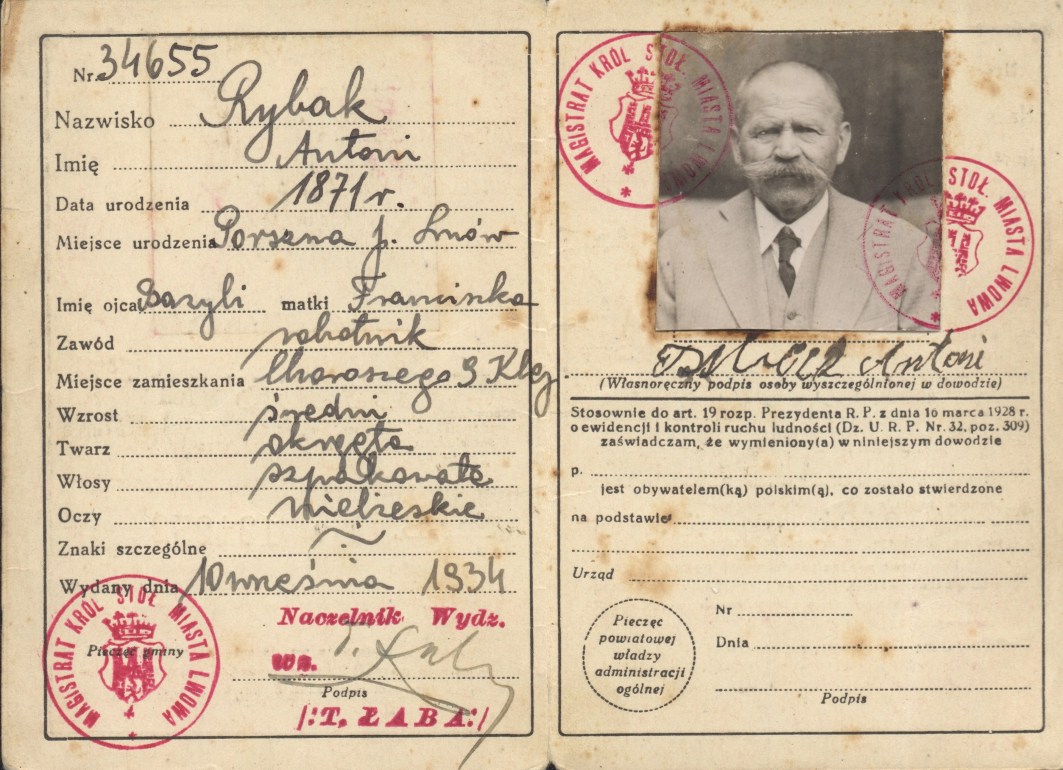 Nr. 34655
Nazwisko Rybak
Imię Antoni
Data urodzenia 1871 r.
Miejsce urodzenia Porszna p. Lwów
Imię ojca Bazyli matki Franciszka
Zawód robotnik
Miejsce zamieszkania 9
Wzrost średni
Twarz okrągła
Włosy szpakowate
Oczy niebieskie
Znaki szczególne
Wydany dnia 10 września 1934
MAGISTRAT KRÓL STOŁ. MIASTA LWOWA
Pieczęć gminy
Naczelnik Wydz.
wz.
Podpis
/:T. ŁABA:/
MAGISTRAT KRÓL STOŁ. MIASTA LWOWA
MAGISTRAT KRÓL STOŁ. MIASTA LWOWA
Antoni
(Własnoręczny podpis osoby wyszczególnionej w dowodzie)
Stosownie do art. 19 rozp. Prezydenta R. P. z dnia 16 marca 1928 r.
o ewidencji i kontroli ruchu ludności (Dz. U. R. P. Nr. 32, poz. 309)
zaświadczam, że wymieniony(a) w niniejszym dowodzie
p.
jest obywatelem(ką) polskim(ą), co zostało stwierdzone
na podstawie
Urząd
Pieczęc
powiatowej
władzy
administracji
ogólnej
Nr
Dnia
Podpis